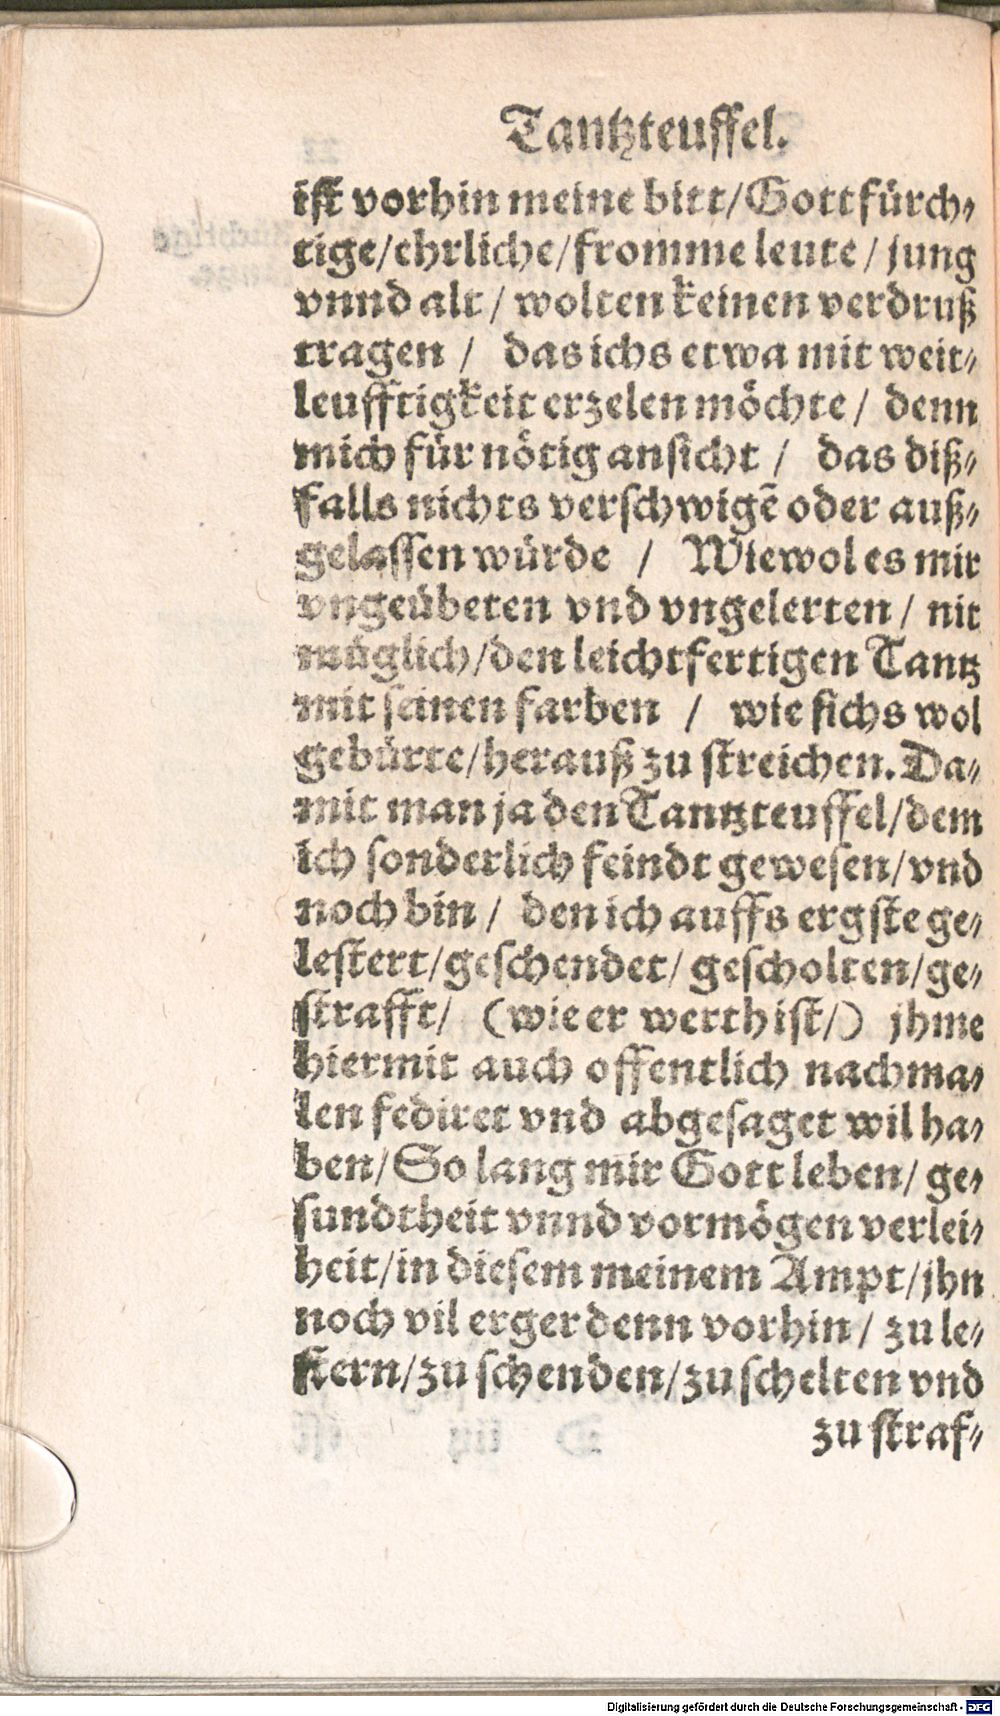 Tantzteuffel.
iſt vorhin meine bitt/Gottfürch⸗
tige/ehrliche/fromme leute/ jung
vnnd alt/ wolten keinen verdruß
tragen / das ichs etwa mit weit⸗
leufftigkeit erzelen möchte/ denn
mich für nötig anſicht / das diß⸗
falls nichts verſchwigẽ oder auß⸗
gelaſſen würde / Wiewol es mir
vngeübeten vnd vngelerten/ nit
müglich/den leichtfertigen Tantz
mit ſeinen farben / wie ſichs wol
gebürte/herauß zu ſtreichen. Da⸗
mit man ja den Tantzteuffel/dem
ich ſonderlich feindt geweſen/vnd
noch bin/ den ich auffs ergſte ge⸗
leſtert/geſchendet/ geſcholten/ge⸗
ſtrafft/ (wie er werth iſt/) jhme
hiermit auch offentlich nachma⸗
len fediret vnd abgeſaget wil ha⸗
ben/So lang mir Gott leben/ ge⸗
ſundtheit vnnd vormögen verlei⸗
heit/in dieſem meinem Ampt/jhn
noch vil erger denn vorhin/ zu le⸗
ſtern/zu ſchenden/zu ſchelten vnd
zu ſtraf⸗
Digitalisierung gefördert durch die Deutsche Forschungsgemeinschaft - DFG